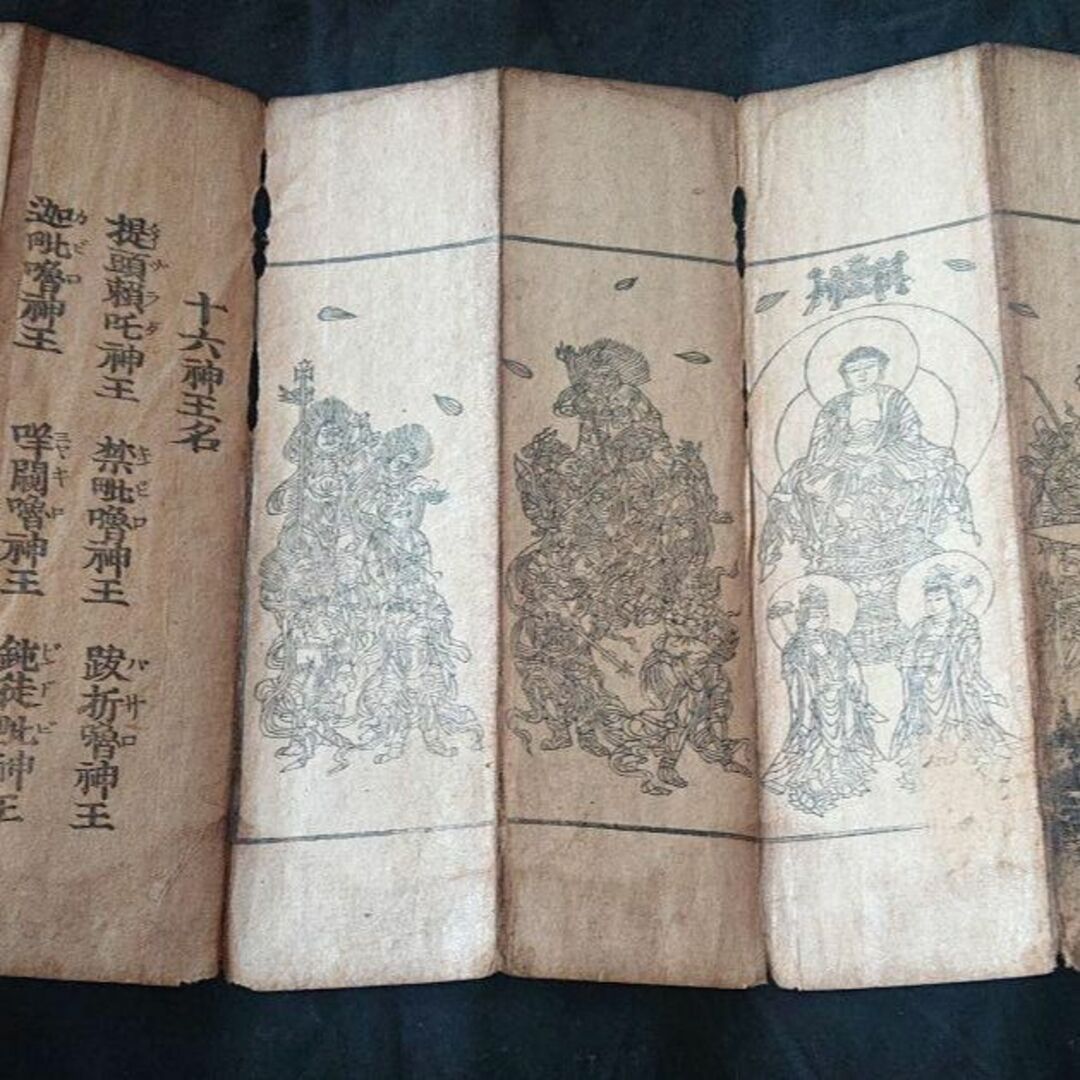 十六神王名
提頭賴吒神王 禁毗嚕神王 跋折嚕神王
迦毗嚕神王 咩闕嚕神王 鈍徒毗神王